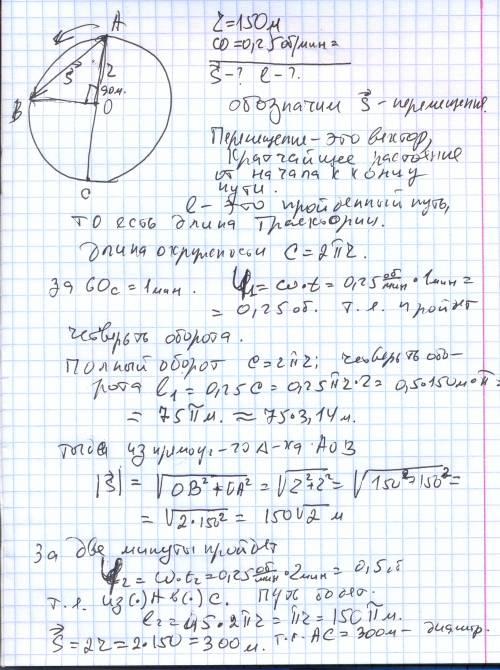 A
B
C
O
S⃗
r
90м.
r = 150м
ω = 0,25 об/мин =
S⃗ - ? l - ?.
обозначим S⃗ - перемещение.
Перемещение - это вектор,
кратчайшее расстояние
от начала к концу
пути.
l - это пройденный путь,
то есть длина траектории.
Длина окружности C = 2πr.
За 60с = 1мин. φ₁ = ω·t = 0,25 об/мин · 1мин =
= 0,25об. т.е. пройдёт
четверть оборота.
Полный оборот C = 2πr; четверть обо-
рота l₁ = 0,25C = 0,25πr·2 = 0,5·150м·π =
= 75πм. ≈ 75·3,14м.
тогда из прямоуг-го Δ-ка AOB
|S⃗| = √OB²+OA² = √r²+r² = √150²+150² =
= √2·150² = 150√2 м
За две минуты пройдёт
φ₂ = ω·t₂ = 0,25 об/мин · 2мин = 0,5об
т.е. из (·)A в (·)C. Путь
l₂ = 0,5·2πr = πr = 150πм.
S⃗ = 2r = 2·150 = 300м. т.к. AC = 300м - диаметр.